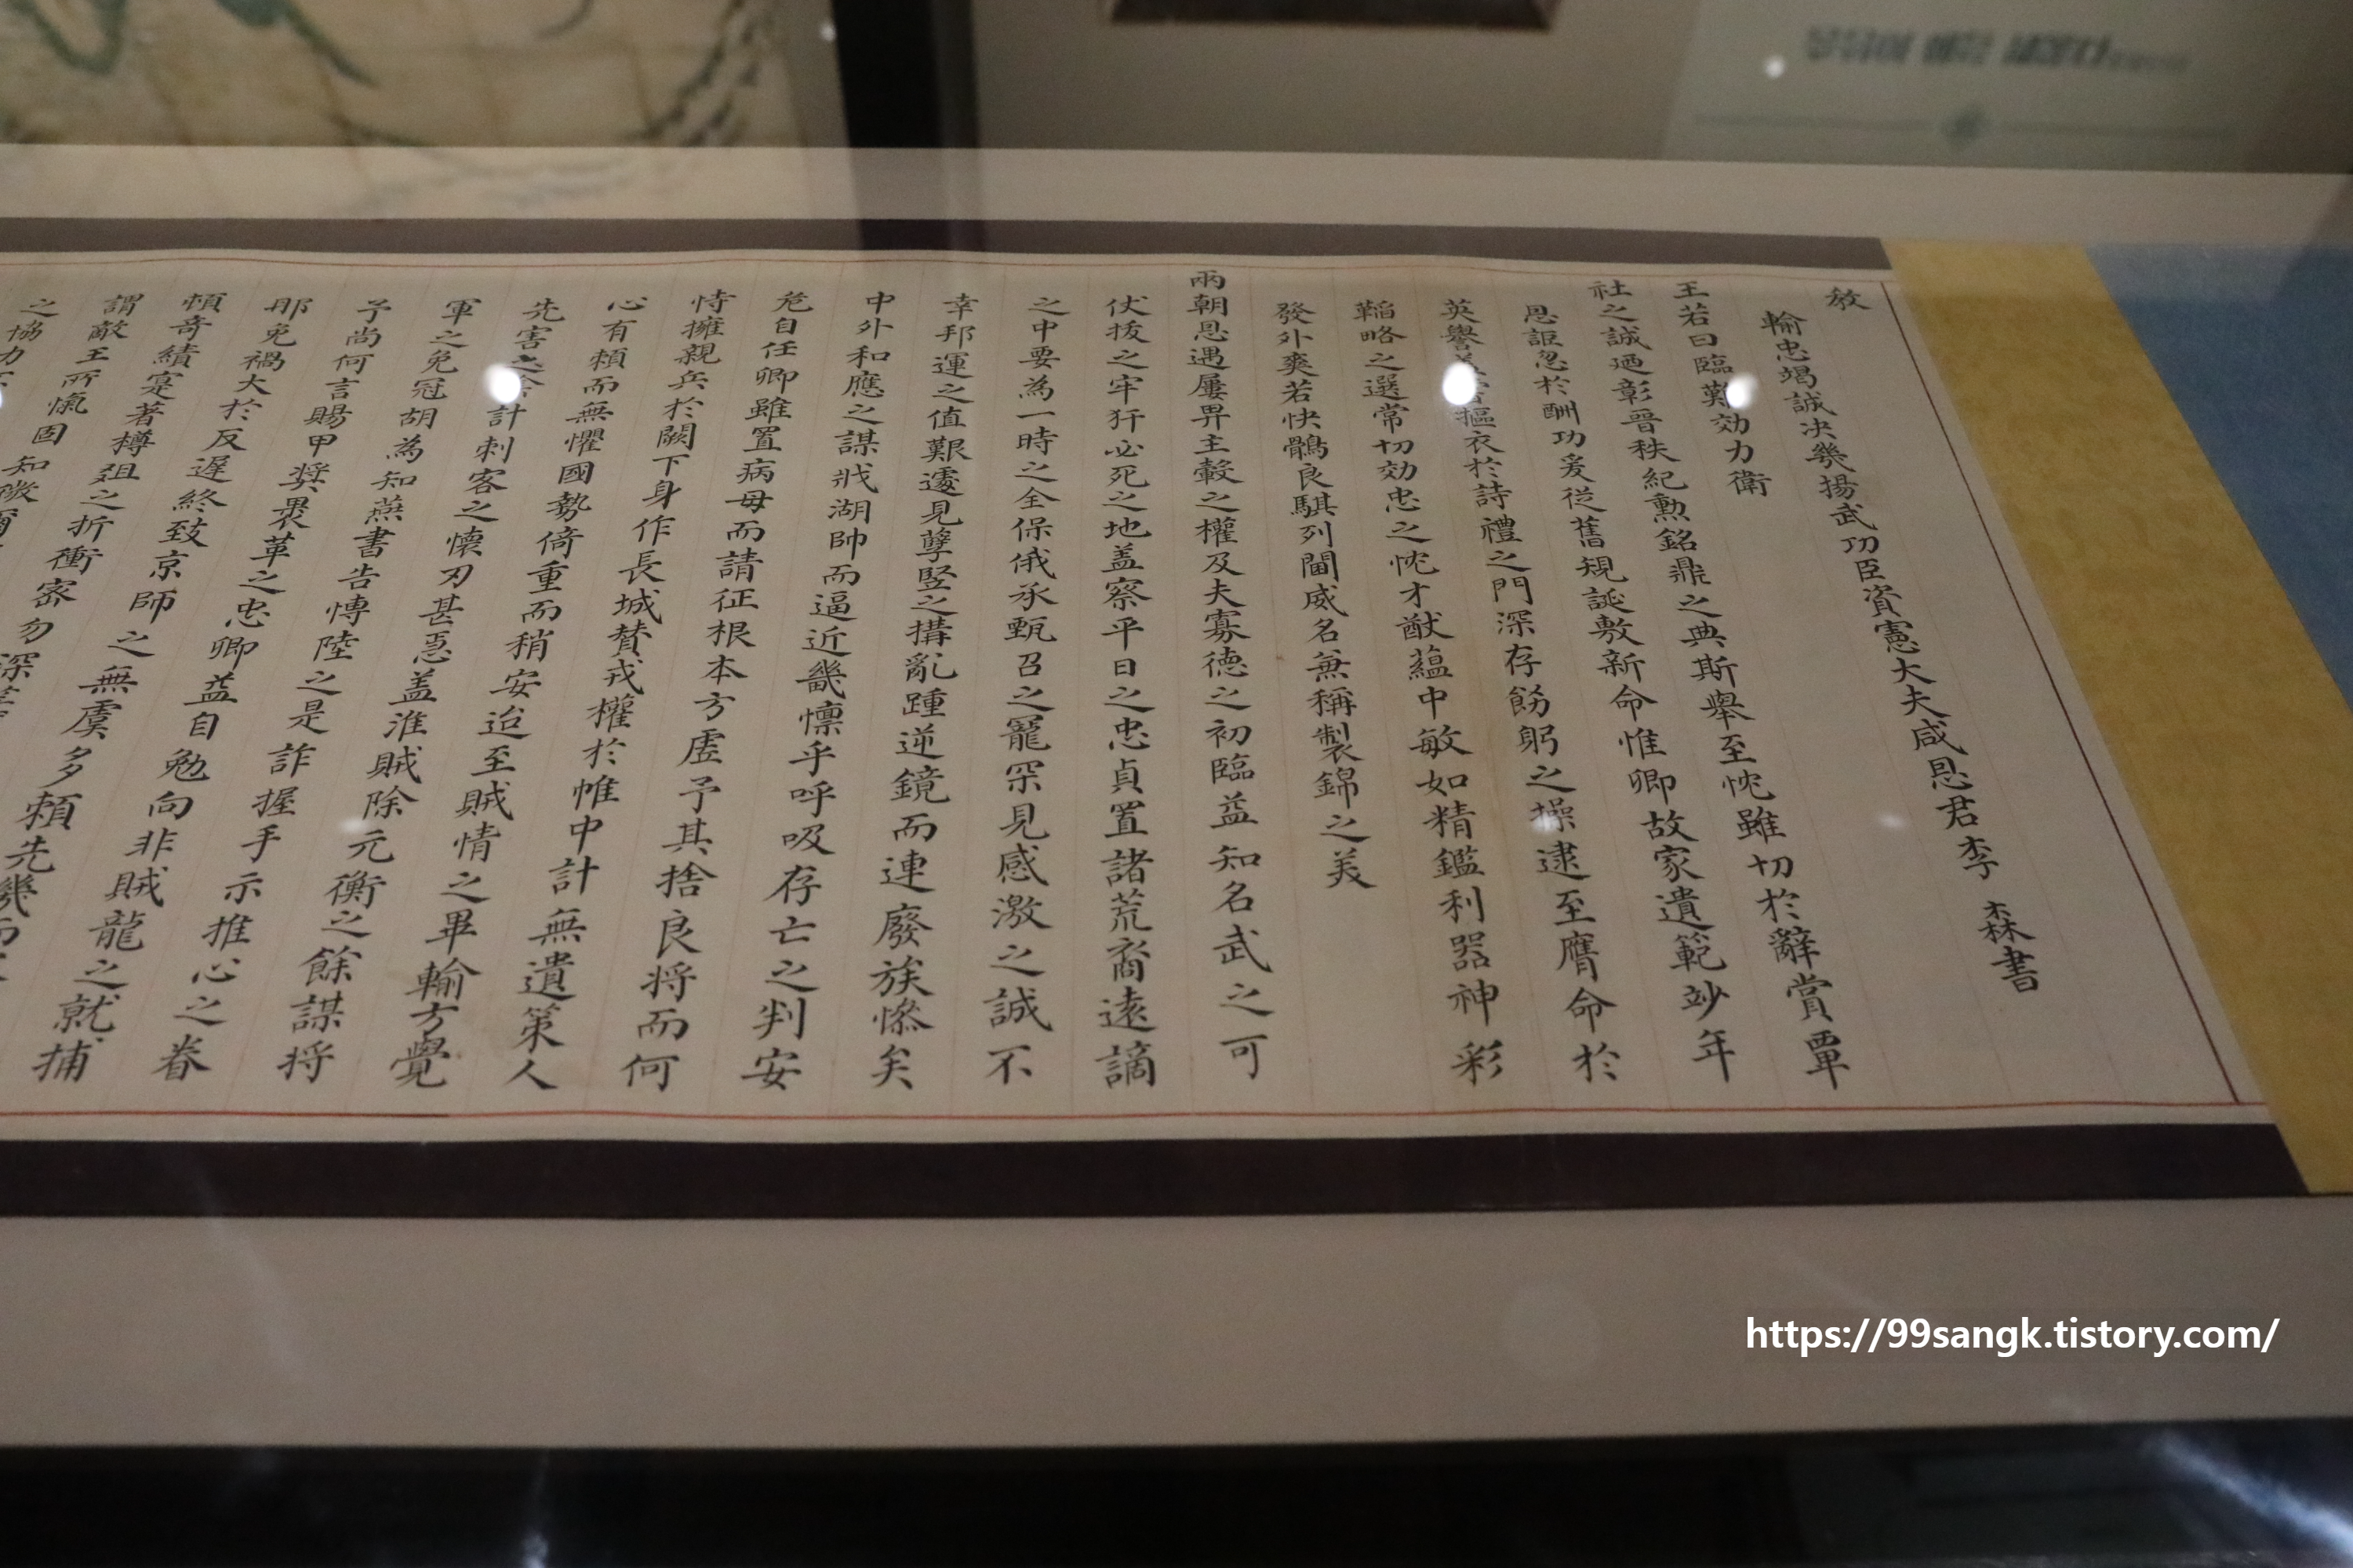 敎
輸忠竭誠决幾揚武功臣資憲大夫咸恩君李森書
王若曰臨難効力衛
社之誠廼彰晉秩紀勳銘鼎之典斯舉至忱雖切於辭賞覃
恩詎忽於酬功爰從舊規誕敷新命惟卿故家遺範妙年
英譽 摳衣於詩禮之門深存飭躬之操逮至膺命於
韜略之選常切効忠之忱才猷蘊中敏如精鑑利器神彩
發外爽若快鶻良騏列閫威名兼稱製錦之美
兩朝恩遇屢畀主轂之權及夫寡德之初臨益知名武之可
仗拔之牢犴必死之地盖察平日之忠貞置諸荒裔遠謫
之中要為一時之全保俄承甄召之寵罙見感激之誠不
幸邦運之值艱遽見孽竪之搆亂踵逆鏡而連廢族慘矣
中外和應之謀戕湖帥而逼近畿懍乎呼吸存亡之判安
危自任卿雖置病母而請征根本方虛予其捨良将而何
恃擁親兵於闕下身作長城賛戎權於帷中計無遺策人
心有頼而無懼國勢倚重而稍安迨至賊情之畢輸方覺
先害之 計刺客之懷刃甚惡盖淮賊除元衡之餘謀将
軍之免冠胡為知燕書告愽陸之是詐握手示推心之眷
予尚何言賜甲奬裹革之忠卿益自勉向非賊龍之就捕
那免禍大於反遲終致京師之無虞多頼先幾而
頃奇績寔著樽俎之折衝宻勿深
謂敵王所愾固知
之協力
https://99sangk.tistory.com/